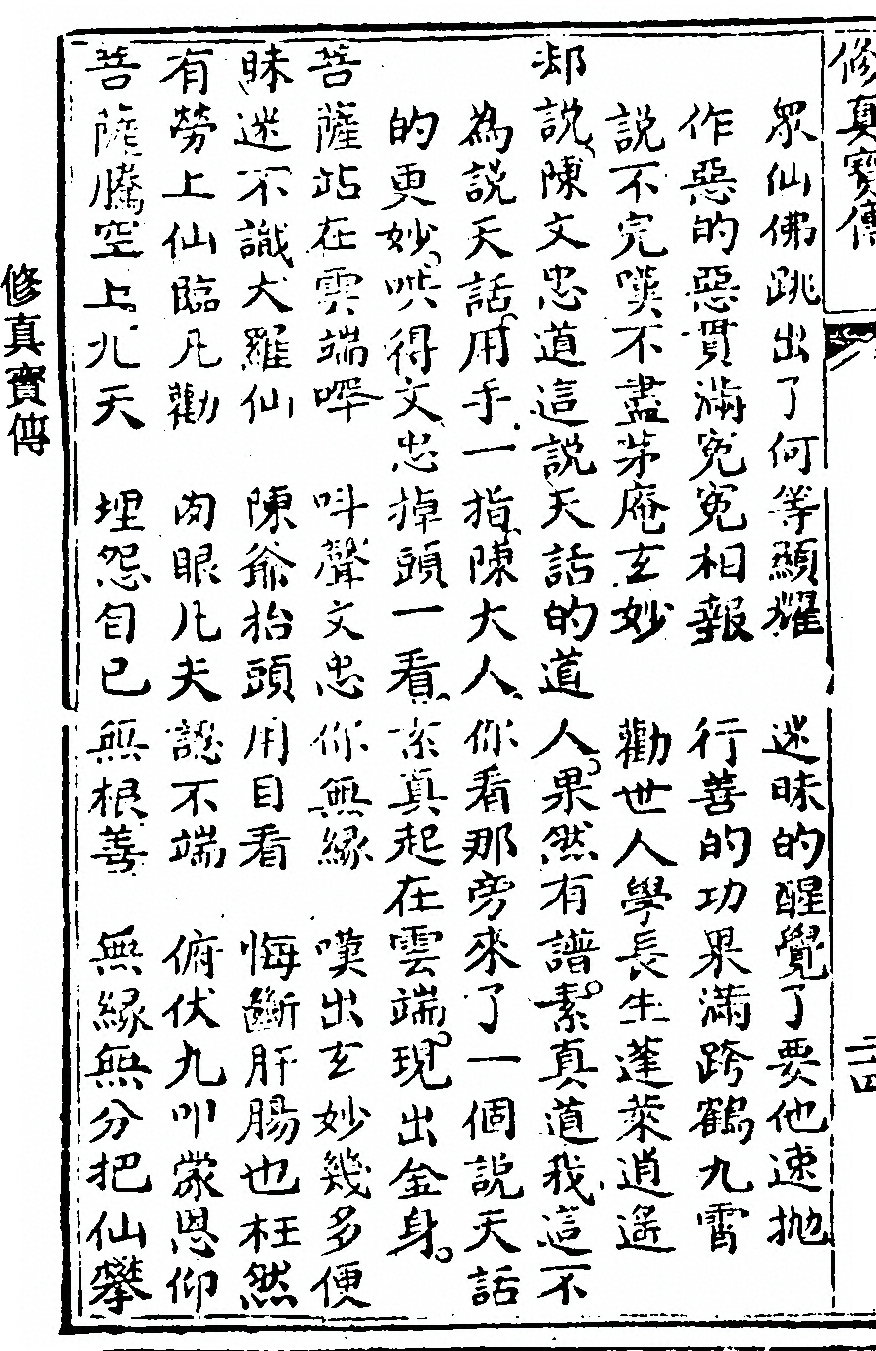 修真寶傳
二四
眾仙佛跳出了何等顯耀　迷昧的醒覺了要他速拋
作惡的惡貫滿冤冤相報　行善的功果滿跨鶴九霄
說不完嘆不盡茅庵玄妙　勸世人學長生蓬萊逍遙
却說陳文忠道這說天話的道人果然有譜素真道我這不
為說天話用手一指陳大人你看那旁來了一個說天話
的更妙哄得文忠掉頭一看素真起在雲端現出金身
菩薩站在雲端喚　叫聲文忠你無緣　嘆出玄妙幾多便
昧迷不識大羅仙　陳爺抬頭用目看　悔斷肝腸也枉然
有勞上仙臨凡勸　肉眼凡夫認不端　俯伏九叩蒙恩仰
菩薩騰空上九天　埋怨自已無根善　無緣無分把仙攀
修真寶傳